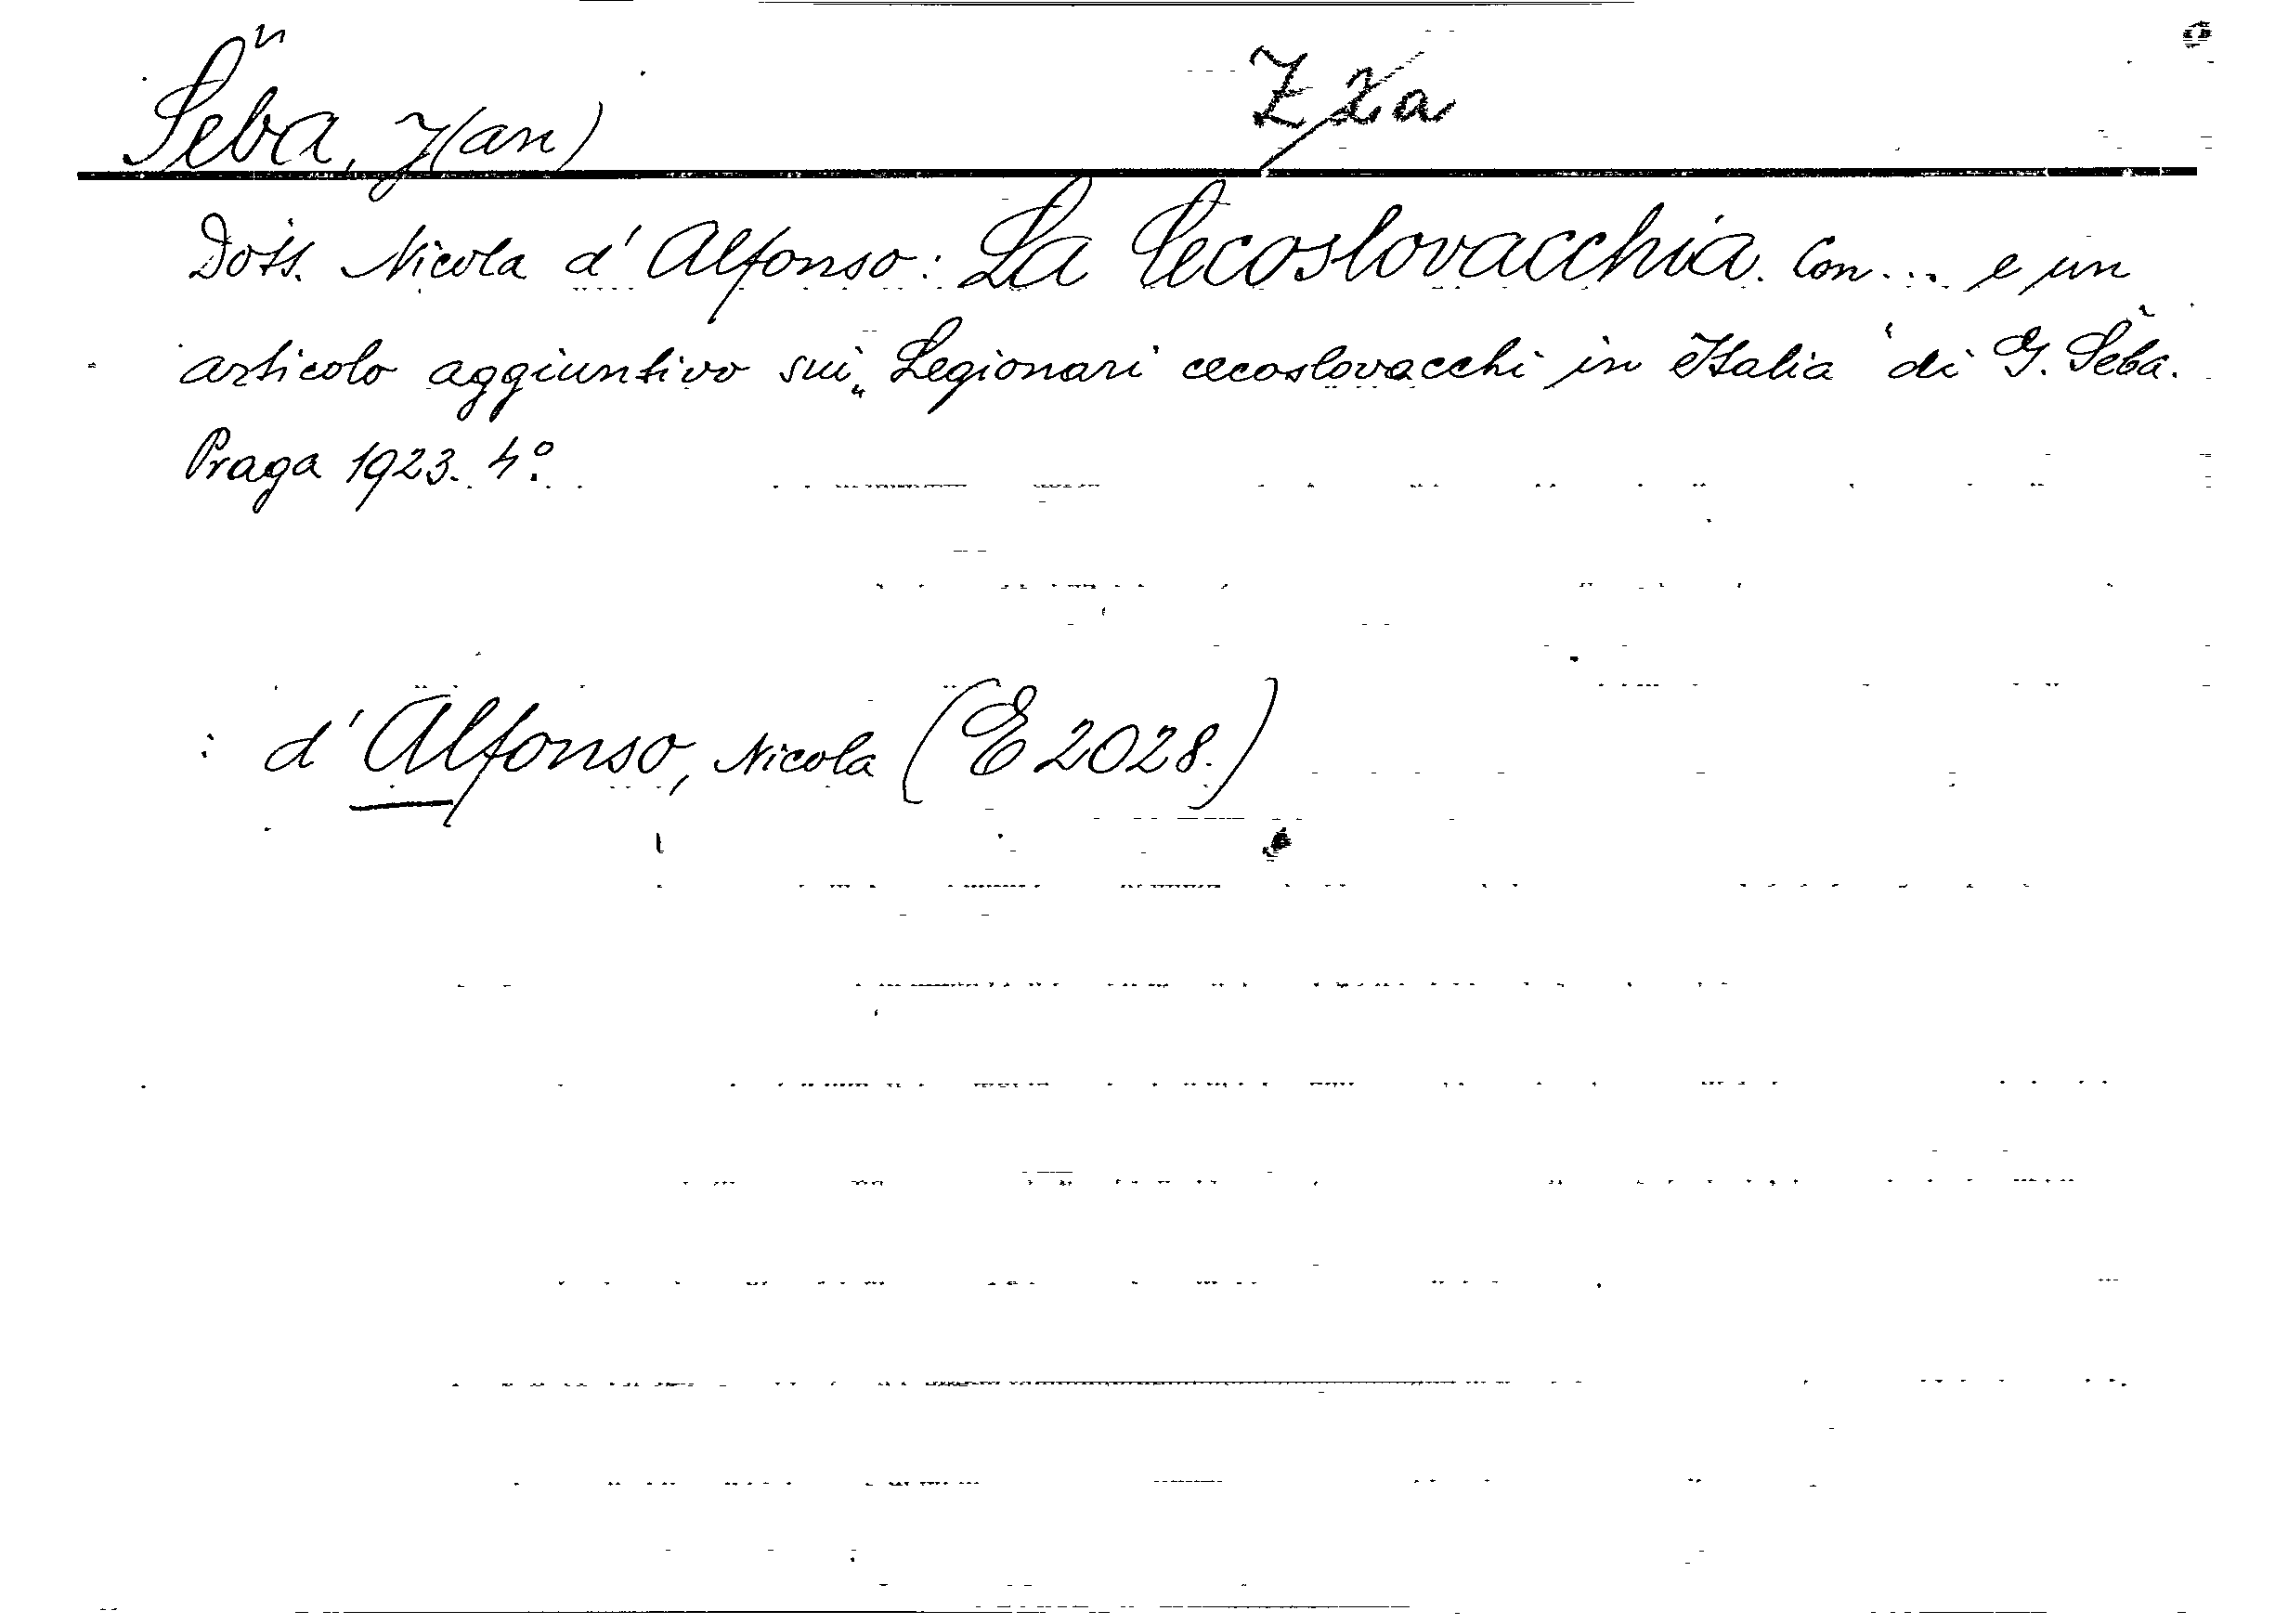 Šeba, J(an)
Z Xa
Dott. Nicola d'Alfonso: La Cecoslovacchia. Con... e un
articolo aggiuntivo sui „Legionari cecoslovacchi in Italia“ di G. Šeba.
Praga 1923. 4°.
: d'Alfonso, Nicola (E 2028.)